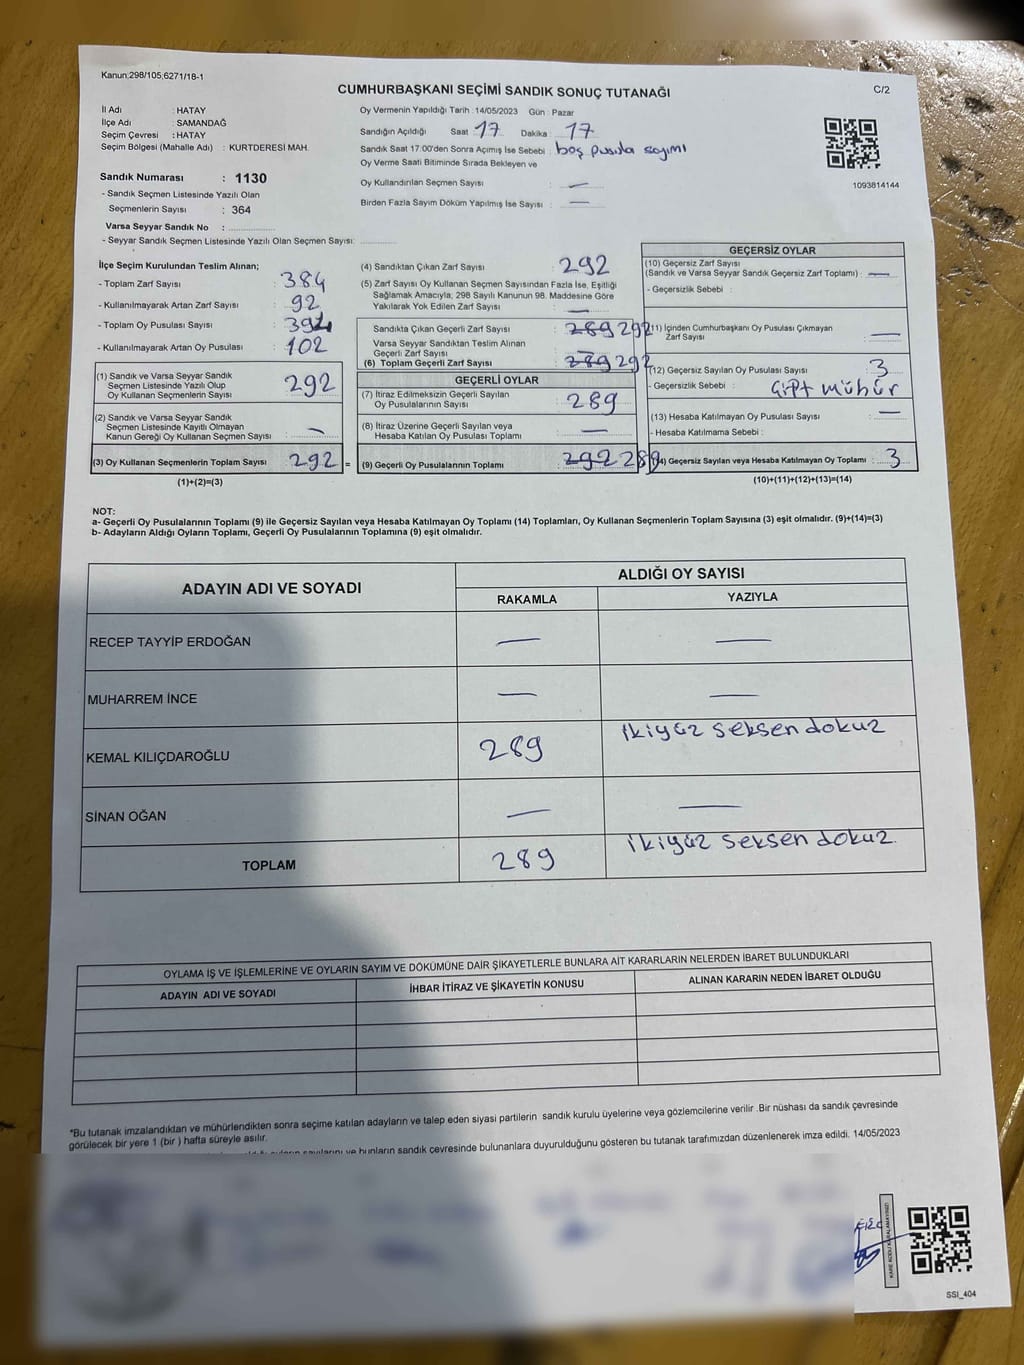 Kanun;298/105,6271/18-1
CUMHURBAŞKANI SEÇİMİ SANDIK SONUÇ TUTANAĞI
C/2
İl Adı : HATAY
İlçe Adı : SAMANDAĞ
Seçim Çevresi : HATAY
Seçim Bölgesi (Mahalle Adı) : KURTDERESİ MAH.
Sandık Numarası : 1130
- Sandık Seçmen Listesinde Yazılı Olan
Seçmenlerin Sayısı : 364
Varsa Seyyar Sandık No :
- Seyyar Sandık Seçmen Listesinde Yazılı Olan Seçmen Sayısı:
Oy Vermenin Yapıldığı Tarih : 14/05/2023 Gün : Pazar
Sandığın Açıldığı Saat : 17 Dakika : 17
Sandık Saat 17:00'den Sonra Açımış İse Sebebi : boş pusula sayımı
Oy Verme Saati Bitiminde Sırada Bekleyen ve
Oy Kullandırılan Seçmen Sayısı : —
Birden Fazla Sayım Döküm Yapılmış İse Sayısı : —
1093814144
İlçe Seçim Kurulundan Teslim Alınan;
- Toplam Zarf Sayısı : 384
- Kullanılmayarak Artan Zarf Sayısı : 92
- Toplam Oy Pusulası Sayısı : 394
- Kullanılmayarak Artan Oy Pusulası : 102
(1) Sandık ve Varsa Seyyar Sandık
Seçmen Listesinde Yazılı Olup
Oy Kullanan Seçmenlerin Sayısı : 292
(2) Sandık ve Varsa Seyyar Sandık
Seçmen Listesinde Kayıtlı Olmayan
Kanun Gereği Oy Kullanan Seçmen Sayısı : —
(3) Oy Kullanan Seçmenlerin Toplam Sayısı : 292 =
(1)+(2)=(3)
(4) Sandıktan Çıkan Zarf Sayısı : 292
(5) Zarf Sayısı Oy Kullanan Seçmen Sayısından Fazla İse, Eşitliği
Sağlamak Amacıyla, 298 Sayılı Kanunun 98. Maddesine Göre
Yakılarak Yok Edilen Zarf Sayısı : —
Sandıkta Çıkan Geçerli Zarf Sayısı : 289 292
Varsa Seyyar Sandıktan Teslim Alınan
Geçerli Zarf Sayısı : —
(6) Toplam Geçerli Zarf Sayısı : 289 292
GEÇERLİ OYLAR
(7) İtiraz Edilmeksizin Geçerli Sayılan
Oy Pusulalarının Sayısı : 289
(8) İtiraz Üzerine Geçerli Sayılan veya
Hesaba Katılan Oy Pusulası Toplamı : —
(9) Geçerli Oy Pusulalarının Toplamı : 292 289
GEÇERSİZ OYLAR
(10) Geçersiz Zarf Sayısı
(Sandık ve Varsa Seyyar Sandık Geçersiz Zarf Toplamı) : —
- Geçersizlik Sebebi :
(11) İçinden Cumhurbaşkanı Oy Pusulası Çıkmayan
Zarf Sayısı : —
(12) Geçersiz Sayılan Oy Pusulası Sayısı : 3
- Geçersizlik Sebebi : Çift mühür
(13) Hesaba Katılmayan Oy Pusulası Sayısı : —
- Hesaba Katılmama Sebebi :
(14) Geçersiz Sayılan veya Hesaba Katılmayan Oy Toplamı : 3
(10)+(11)+(12)+(13)=(14)
NOT:
a- Geçerli Oy Pusulalarının Toplamı (9) ile Geçersiz Sayılan veya Hesaba Katılmayan Oy Toplamı (14) Toplamları, Oy Kullanan Seçmenlerin Toplam Sayısına (3) eşit olmalıdır. (9)+(14)=(3)
b- Adayların Aldığı Oyların Toplamı, Geçerli Oy Pusulalarının Toplamına (9) eşit olmalıdır.
ADAYIN ADI VE SOYADI ALDIĞI OY SAYISI
RAKAMLA YAZIYLA
RECEP TAYYİP ERDOĞAN — —
MUHARREM İNCE — —
KEMAL KILIÇDAROĞLU 289 ikiyüz seksen dokuz
SİNAN OĞAN — —
TOPLAM 289 ikiyüz seksen dokuz
OYLAMA İŞ VE İŞLEMLERİNE VE OYLARIN SAYIM VE DÖKÜMÜNE DAİR ŞİKAYETLERLE BUNLARA AİT KARARLARIN NELERDEN İBARET BULUNDUKLARI
ADAYIN ADI VE SOYADI İHBAR İTİRAZ VE ŞİKAYETİN KONUSU ALINAN KARARIN NEDEN İBARET OLDUĞU
*Bu tutanak imzalandıktan ve mühürlendikten sonra seçime katılan adayların ve talep eden siyasi partilerin sandık kurulu üyelerine veya gözlemcilerine verilir .Bir nüshası da sandık çevresinde
görülecek bir yere 1 (bir ) hafta süreyle asılır.
ve bunların sandık çevresinde bulunanlara duyurulduğunu gösteren bu tutanak tarafımızdan düzenlenerek imza edildi. 14/05/2023
KARE KODU KARALAMAYINIZ!
SSI_404